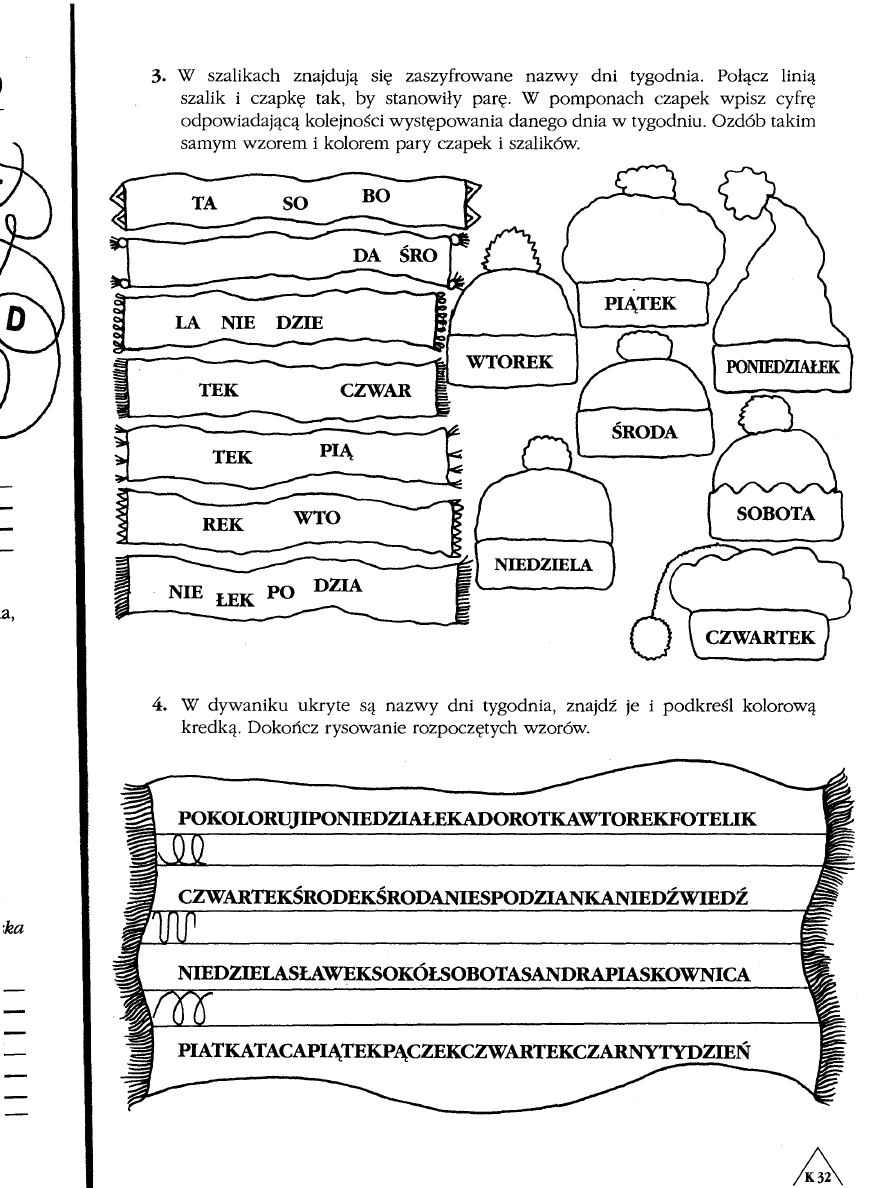 3. W szalikach znajdują się zaszyfrowane nazwy dni tygodnia. Połącz linią
szalik i czapkę tak, by stanowiły parę. W pomponach czapek wpisz cyfrę
odpowiadającą kolejności występowania danego dnia w tygodniu. Ozdób takim
samym wzorem i kolorem pary czapek i szalików.
TA SO BO
DA ŚRO
LA NIE DZIE
TEK CZWAR
TEK PIĄ
REK WTO
NIE ŁEK PO DZIA
PIĄTEK
WTOREK
PONIEDZIAŁEK
ŚRODA
SOBOTA
NIEDZIELA
CZWARTEK
D
a,
ka
4. W dywaniku ukryte są nazwy dni tygodnia, znajdź je i podkreśl kolorową
kredką. Dokończ rysowanie rozpoczętych wzorów.
POKOLORUJIPONIEDZIAŁEKADOROTKAWTOREKFOTELIK
CZWARTEKŚRODEKŚRODANIESPODZIANKANIEDŹWIEDŹ
NIEDZIELASŁAWEKSOKÓŁSOBOTASANDRAPIASKOWNICA
PIATKATACAPIĄTEKPĄCZEKCZWARTEKCZARNYTYDZIEŃ
K 32